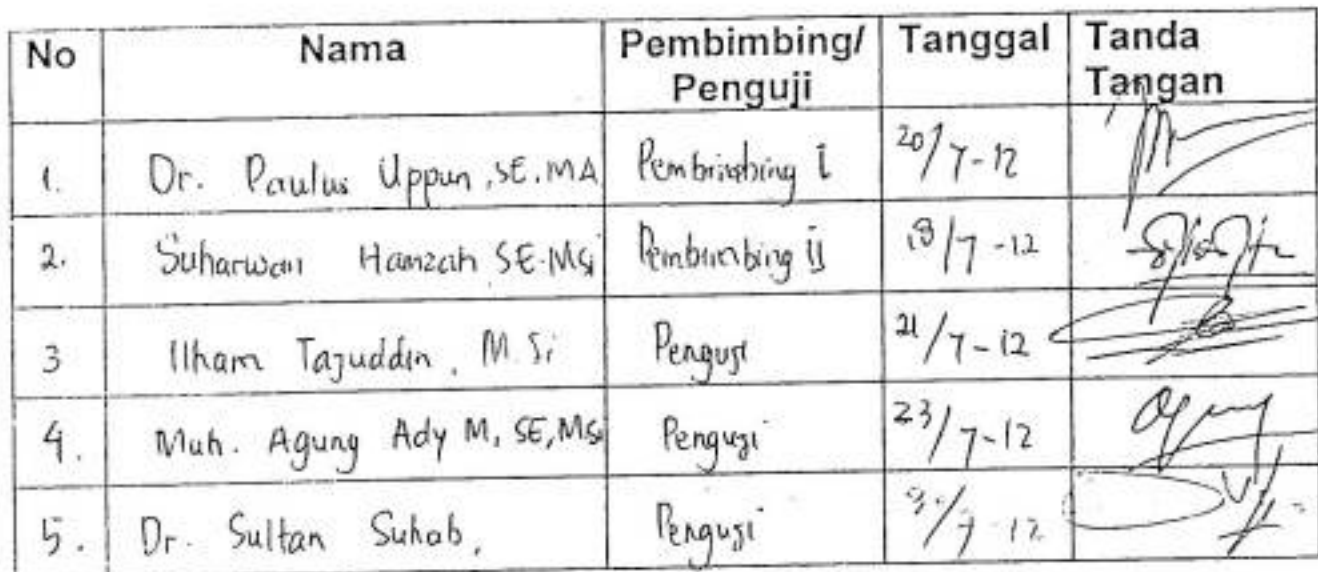 No Nama Pembimbing/ Penguji Tanggal Tanda Tangan
1. Dr. Paulus Uppun, SE, MA Pembimbing I 20/7-12
2. Suharwan Hamzah SE. MSi Pembimbing II 19/7-12
3 Ilham Tajuddin, M. Si Penguji 21/7-12
4. Muh. Agung Ady M, SE, MSi Penguji 23/7-12
5. Dr. Sultan Suhab, Penguji /7-12